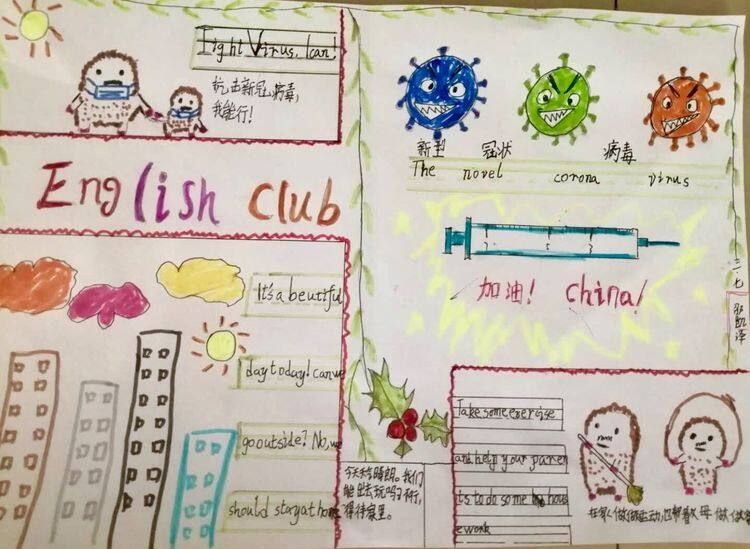 Fight Virus, I can!
抗击新冠病毒,
我能行!
English club
新型 冠状 病毒
The novel corona virus
加油! China!
二·七
It's a beutiful
day today! can we
go outside? No, we
should stary at home
今天天气晴朗。我们
能出去玩吗?不行,
得待家里。
Take some exercise
and help your paren
ts to do some hous
ework
在家做做运动,也帮着父母做做家